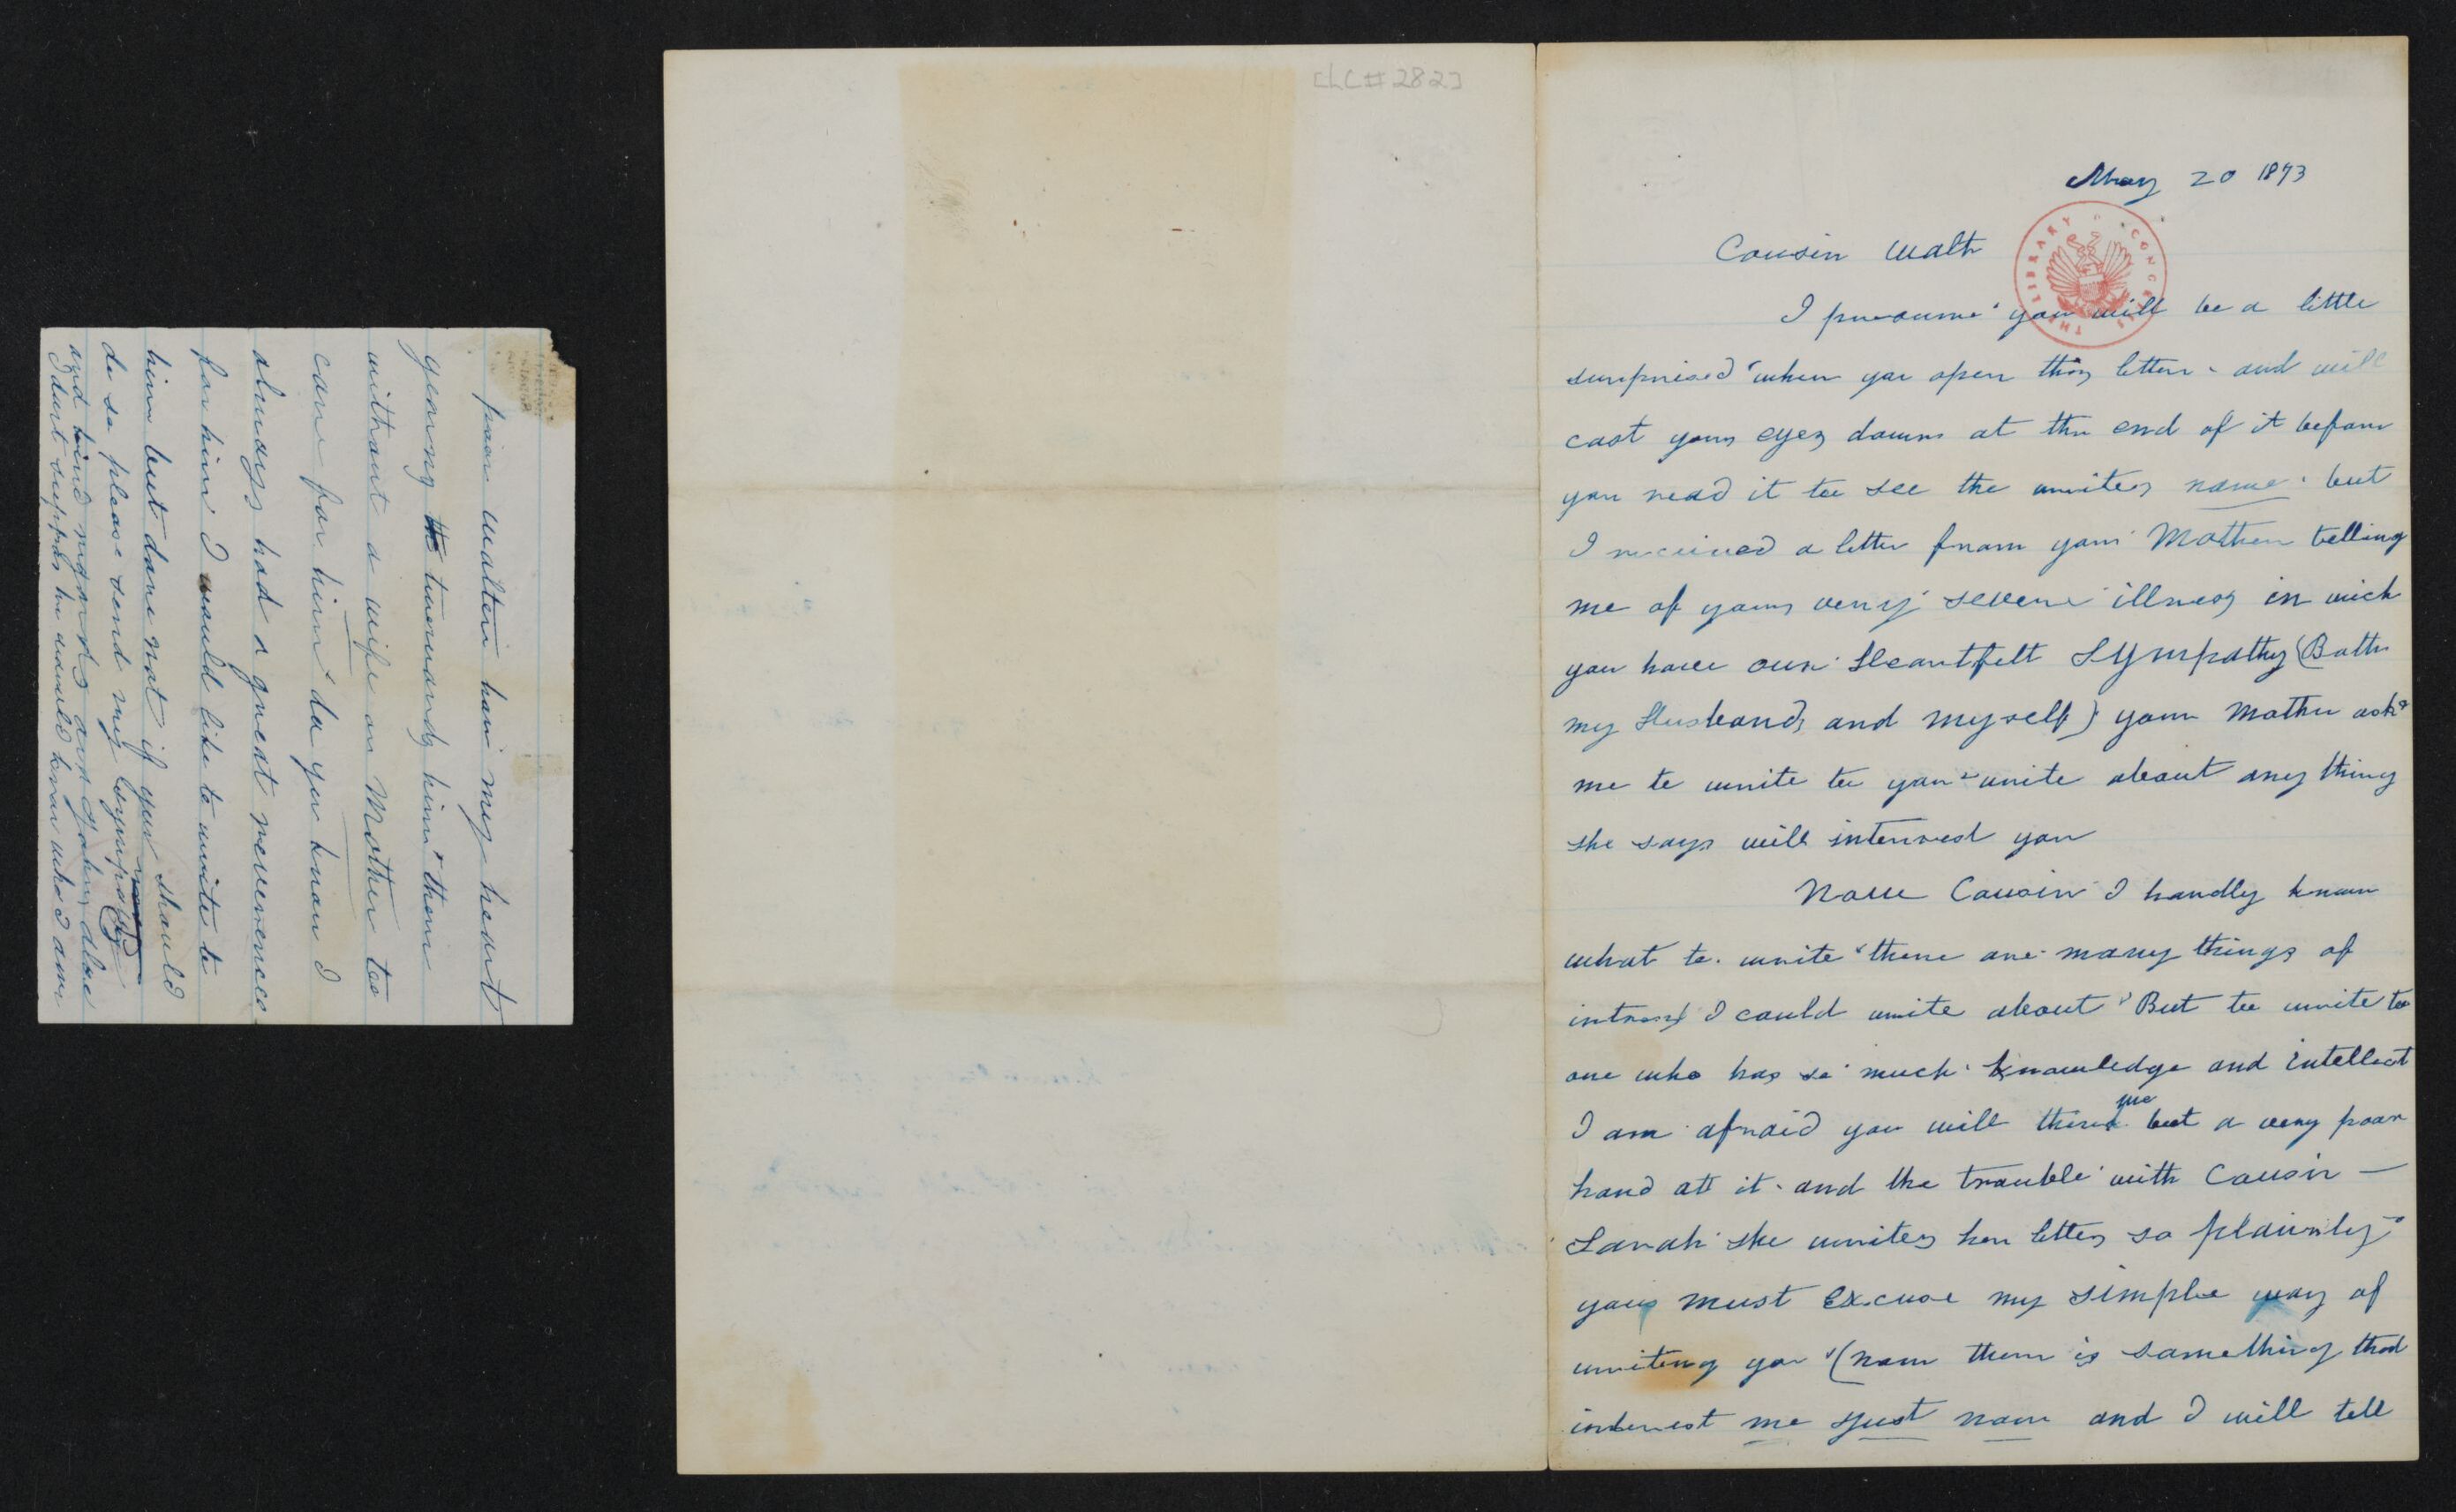 poor walter how my heart
yearns towards him & them
without a wife or Mother to
care for him do you know I
always had a great reverences
for him I would like to write to
him but dare not if you should
do so please send my sympathy
and kind regards and John also
I dont suppose he would know who I am
[LC#282]
May 20 1873
Cousin Walt
I presume you will be a little
surprised when you open this letter and will
cast yours eyes down at the end of it before
you read it to see the writers name but
I received a letter from your Mother telling
me of yours very severe illness in wich
you have our Heartfelt Sympathy (Both
my Husband, and myself) your Mother askd
me to write to you write about any thing
she says will interrest you
Now Cousin I hardly know
what to write there are many things of
intrest I could write about But to write to
one who has so much Knowledge and intellect
I am afraid you will think me but a very poor
hand att it and the trouble with Cousin —
Sarah she writes her letters so plainly
yous must Excuse my simple way of
writing you (now there is something that
interest me just now and I will tell
THE LIBRARY OF CONGRESS